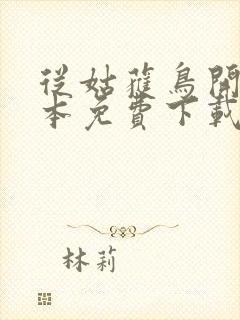 從姑蘿鳥開
本免費下載
林莉